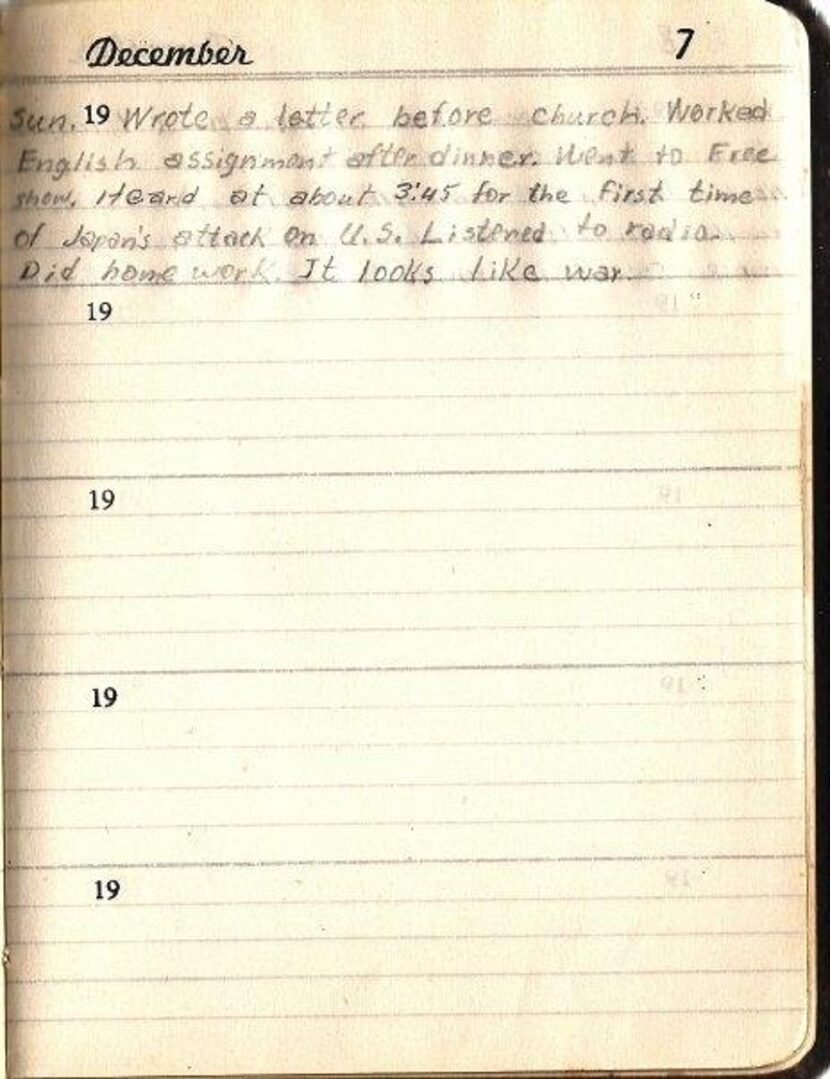 December 7
Sun. 19 Wrote a letter before church. Worked
English assignment after dinner. Went to Free
show. Heard at about 3:45 for the first time
of Japan's attack on U.S. Listened to radio.
Did home work. It looks like war.
19
19
19
19